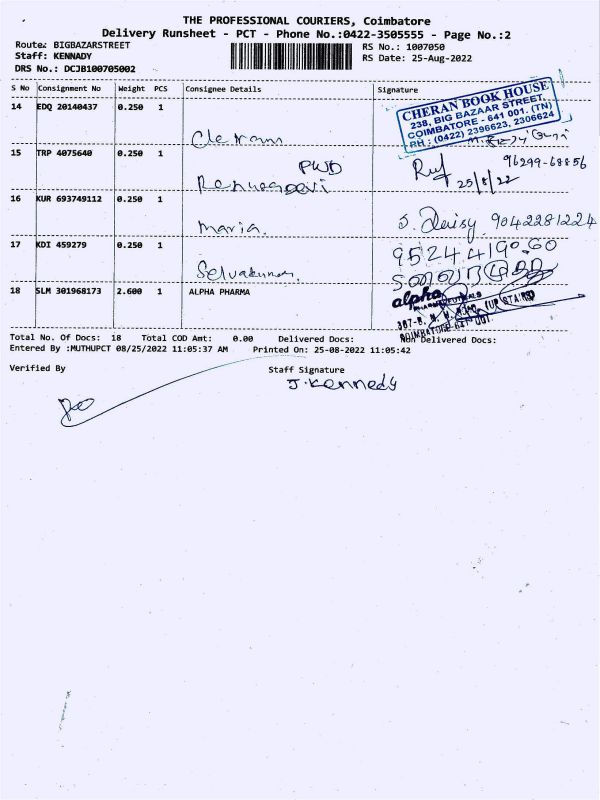 THE PROFESSIONAL COURIERS, Coimbatore
Delivery Runsheet - PCT - Phone No.:0422-3505555 - Page No.:2
Route: BIGBAZARSTREET RS No.: 1007050
Staff: KENNADY RS Date: 25-Aug-2022
DRS No.: DCJB100705002
S No Consignment No Weight PCS Consignee Details Signature
14 EDQ 20140437 0.250 1
CHERAN BOOK HOUSE
238, BIG BAZAAR STREET,
COIMBATORE - 641 001. (TN)
PH : (0422) 2396623, 2306624
Cheram
15 TRP 4075640 0.250 1 PWD 96299-68856
25/8/22
16 KUR 693749112 0.250 1
Maria. S. Daisy 9042281224
17 KDI 459279 0.250 1 9524419060
Selvakumar.
18 SLM 301968173 2.600 1 ALPHA PHARMA
alpha
Total No. Of Docs: 18 Total COD Amt: 0.00 Delivered Docs: Non Delivered Docs:
Entered By :MUTHUPCT 08/25/2022 11:05:37 AM Printed On: 25-08-2022 11:05:42
Verified By Staff Signature
J. Kennedy